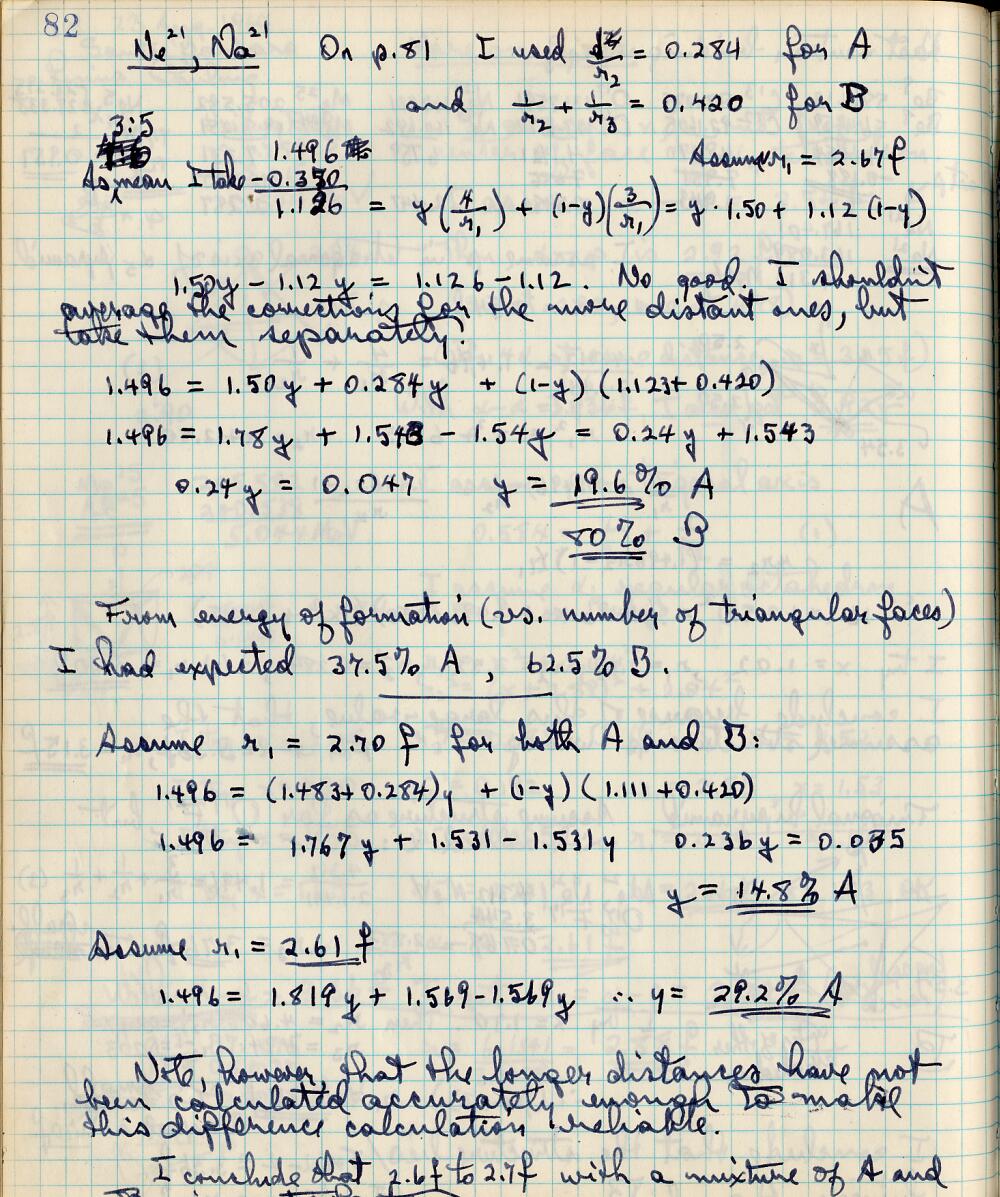 82
Ne²¹, Na²¹ On p.81 I used 1/r₂ = 0.284 for A
and 1/r₂ + 1/r₃ = 0.420 for B
3:5
1.496 Assume r₁ = 2.67f
As mean I take -0.370
1.126 = y(4/r₁) + (1-y)(3/r₁) = y · 1.50 + 1.12 (1-y)
1.50y - 1.12y = 1.126 - 1.12. No good. I shouldn't
average the corrections for the more distant ones, but
take them separately:
1.496 = 1.50y + 0.284y + (1-y) (1.123 + 0.420)
1.496 = 1.78y + 1.543 - 1.54y = 0.24y + 1.543
0.24y = 0.047 y = 19.6% A
80% B
From energy of formation (vs. number of triangular faces)
I had expected 37.5% A, 62.5% B.
Assume r₁ = 2.70 f for both A and B:
1.496 = (1.483+0.284)y + (1-y) (1.111 + 0.420)
1.496 = 1.767y + 1.531 - 1.531y 0.236y = 0.035
y = 14.8% A
Assume r₁ = 2.61 f
1.496 = 1.819y + 1.569 - 1.569y ∴ y = 29.2% A
Note, however, that the longer distances have not
been calculated accurately enough to make
this difference calculation reliable.
I conclude that 2.6f to 2.7f with a mixture of A and